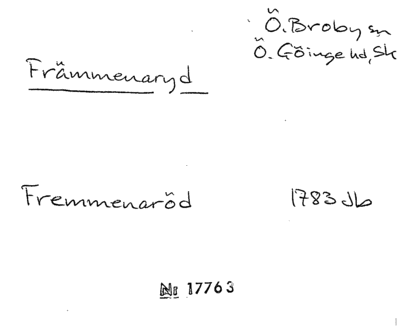 Ö. Broby sn
Ö. Göinge hd, Sk
Främmenaryd
Fremmenaröd 1783 Jb
Nr 17763